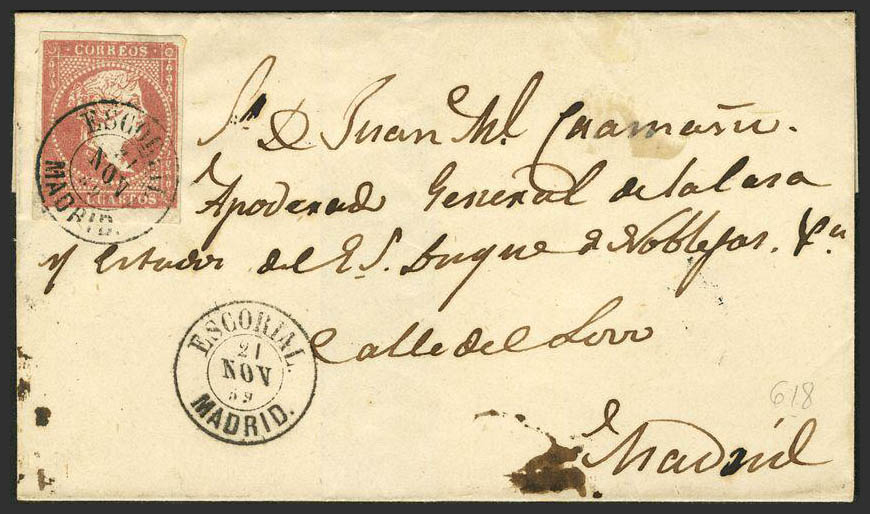 CORREOS
CUARTOS
ESCORIAL
21
NOV
MADRID.
Sr. D. Juan Ml. Caamaño.
Apoderado General de la Casa
y Estados del E. S. Duque de Noblejas. &a
Calle del Lovo
ESCORIAL
21
NOV
59
MADRID.
618
Madrid